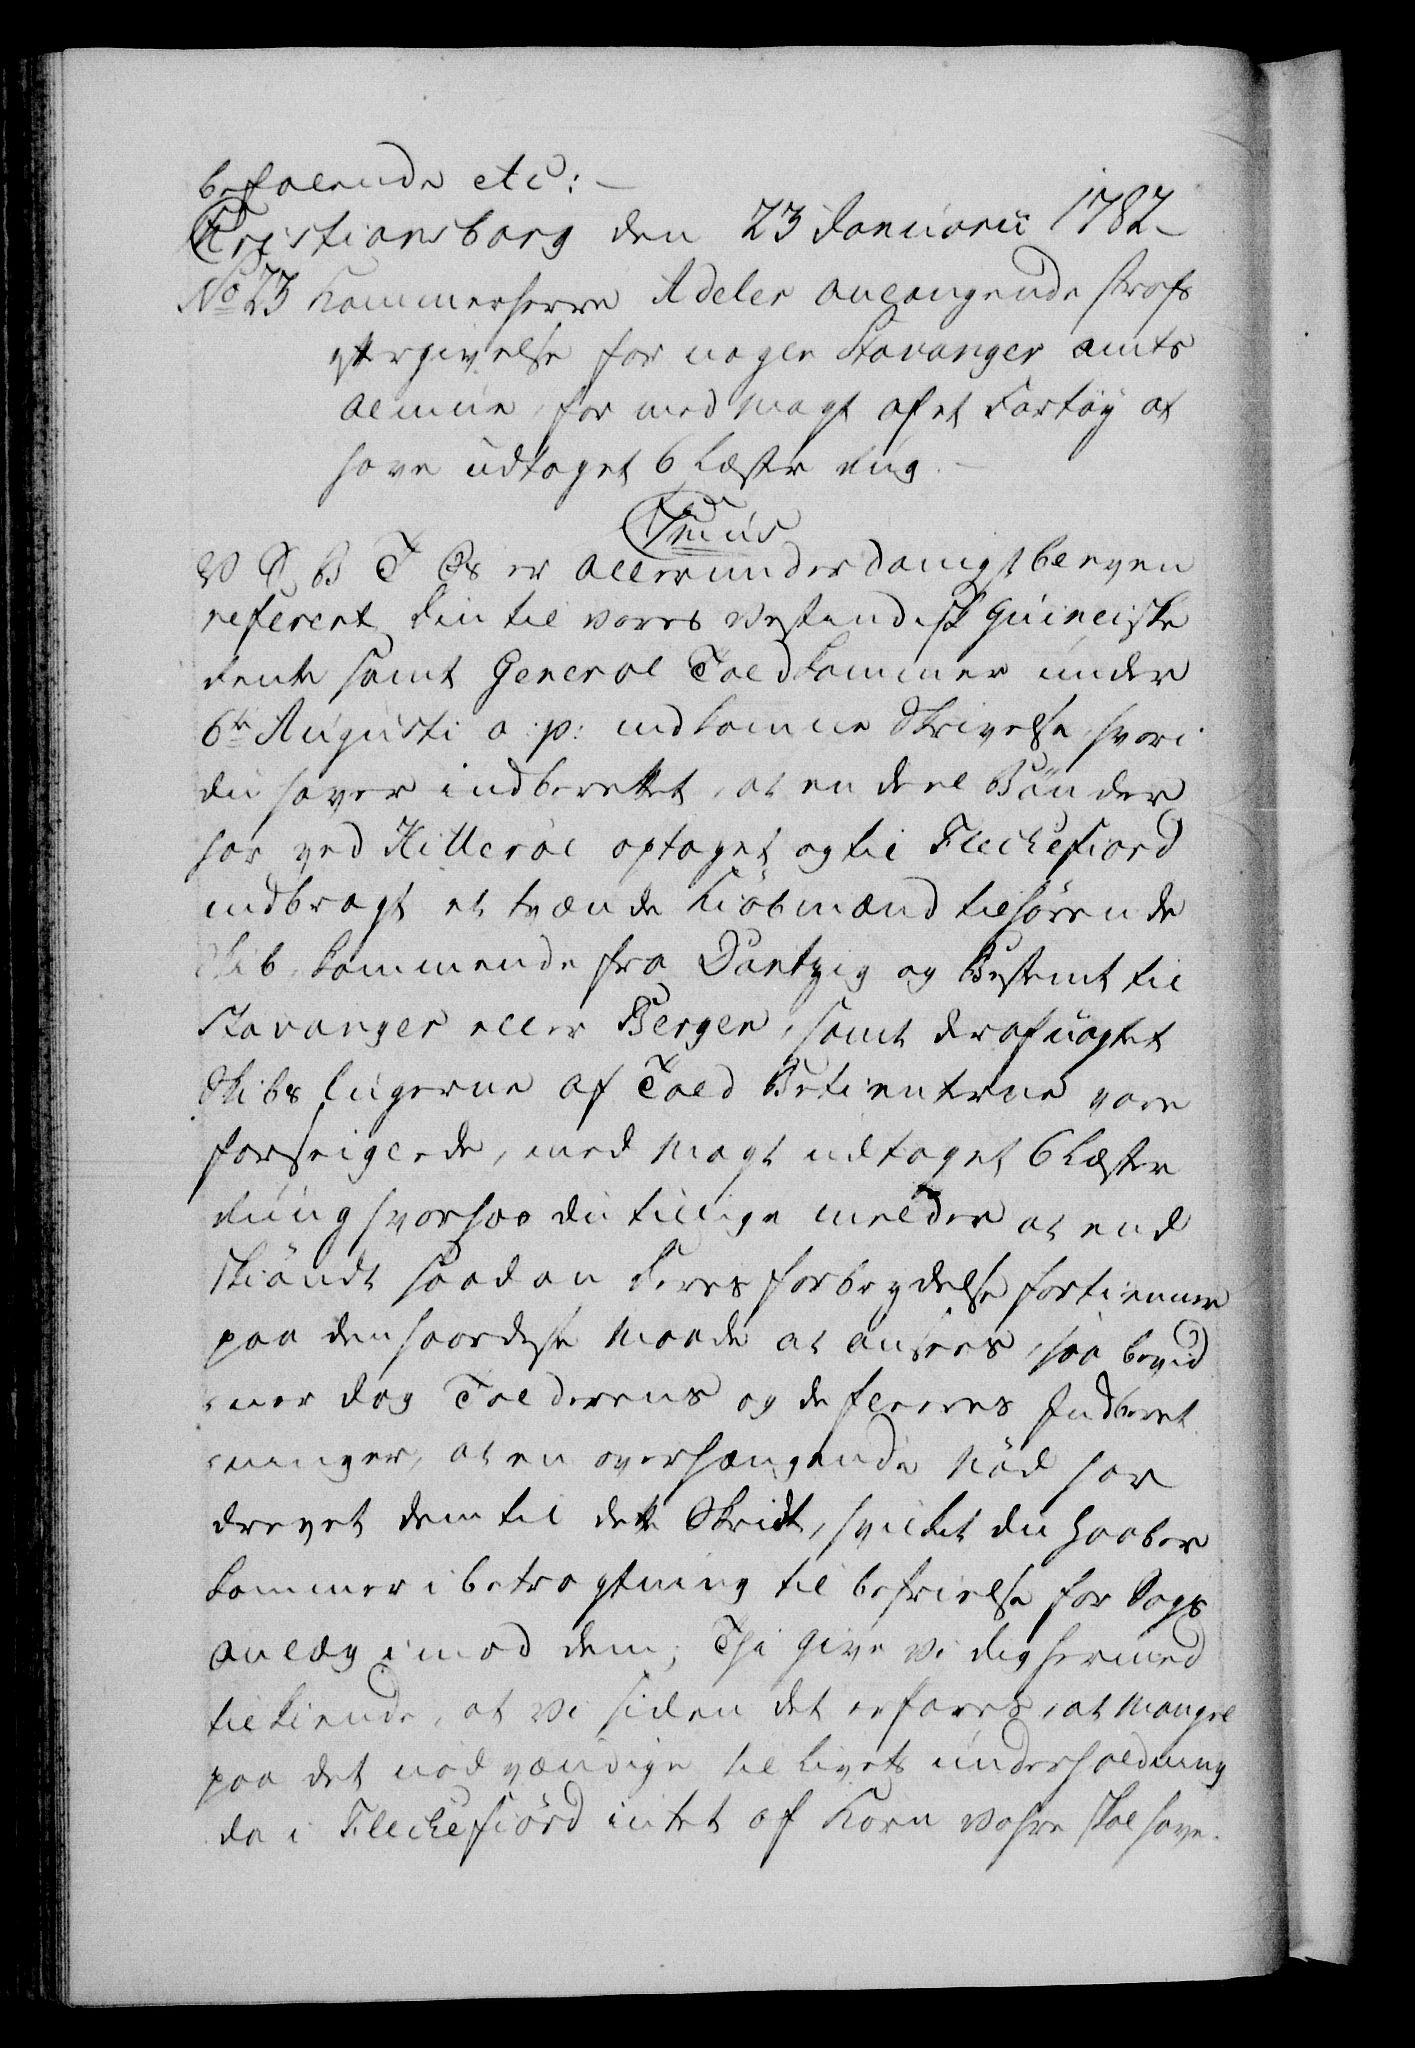 befalende etc: –
Christiansborg den 23 Januarii 1782 –
No 23 Kammerherre Adeler anlangende Strafs
eftergivelse for nogle Stavanger amts
almue, for med Magt af et Fartöy at
have udtaget 6 Læster Rug. –
Cmus
V G B T Os er allerunderdanigst bleven
refereret din til vores Vestindisk Guineiske
Rente samt General Toldkammer under
6te Augusti a: p: indkomne Skrivelse, hvori
du haver indberettet, at en deel Bönder
har ved Hitteröe optaget og til Fleckefiord
indbragt et tvænde Kiöbmænd tilhörende
Skib, kommende fra Dantzig og Bestemt til
Stavanger eller Bergen, samt deraf uagtet
Skibs lugerne af Told Betienterne vare
forseiglede, med Magt udtaget 6 Læster
Rüug hvorhos du tillige melder at end
skiöndt saadan deres forbrydelse fortienner
paa den haardeste Maade at ansees, saa bevid
ner dog Tolderens og de fleeres Indberet
ninger, at en overhængende Nöd har
drevet dem til dette Skridt, hvilket du haaber
kommer i betragtning til befrielse for Sags
anlæg imod dem; Thi give vi dig hermed
tilkiende, at vi siden det erfares, at Mangel
paa det nødvændige til Livets underholdning
da i Fleckefiörd intet af Korn Vahre skal have